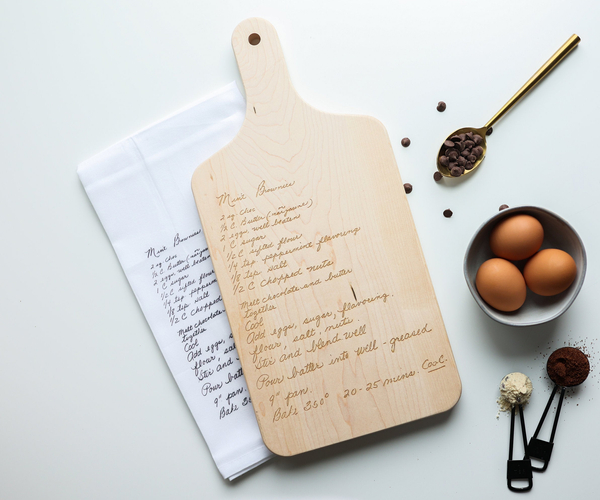 Mint Brownies
2 sq choc
½ C Butter (margarine)
2 eggs, well beaten
1 C sugar
½ C sifted flour
¼ tsp peppermint flavoring
⅛ tsp salt
½ C chopped nuts
Melt chocolate and butter
together.
Cool
Add eggs, sugar, flavoring.
flour, salt, nuts.
Stir and blend well
Pour batter into well - greased
9" pan.
Bake 350° 20-25 mins. Cool.
Mint Brownies
2 sq choc
½ C Butter (margarine
2 eggs, well beaten
1 C sugar
½ C sifted flour
¼ tsp peppermin
⅛ tsp salt
½ C chopped
Melt chocolate
together.
Cool
Add eggs, s
flour, sal
Stir and
Pour batt
9" pan.
Bake 35